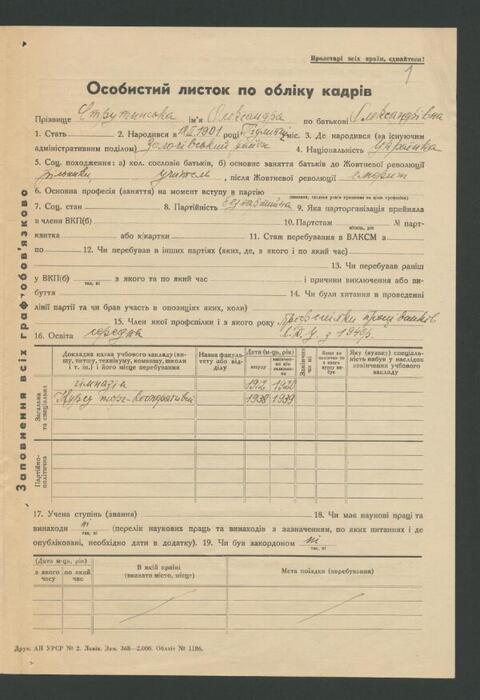 Пролетарі всіх країн, єднайтеся!
1
Особистий листок по обліку кадрів
Прізвище Струтинська ім'я Олександра по батькові Олександрівна
1. Стать 2. Народився 1901 року міс. 3. Де народився (за існуючим
адміністративним поділом) 4. Національність Українка
5. Соц. походження: а) кол. сословіє батьків, б) основне заняття батьків до Жовтневої революції
учитель, після Жовтневої революції емерит
6. Основна професія (заняття) на момент вступу в партію
7. Соц. стан 8. Партійність безпартійна 9. Яка парторганізація прийняла
в члени ВКП(б) 10. Партстаж № парт-
квитка або к/картки 11. Стаж перебування в ВЛКСМ з
по 12. Чи перебував в інших партіях (яких, де, з якого і по який час)
13. Чи перебував раніш
у ВКП(б) так, ні з якого та по який час і причини виключення або ви-
буття 14. Чи були хитання в проведенні
лінії партії та чи брав участь в опозиціях, яких, коли)
15. Член якої профспілки і з якого року
16. Освіта середня
Заповнення всіх граф обов'язково
Загальна та спеціальна
Партійно-політична
Докладна назва учбового закладу (вищу, петшу, технікуму, комвишу, школи і т. ін.) і його місце перебування
Назва факультету або відділу
Дата (м-ць, рік)
вступу
Закінчив чи ні
Яку (вузьку) спеціальність набув у наслідок закінчення учбового закладу
гімназія 1912 1920
Курси торг.-кооперативні 1938 1939
17. Учена ступінь (звання) 18. Чи має наукові праці та
винаходи ні так, ні (перелік наукових праць та винаходів з зазначенням, по яких питаннях і де
опубліковані, необхідно дати в додатку). 19. Чи був закордоном ні
так, ні
(Дата м-ць, рік)
з якого часу
по який час
В якій країні
(вказати місто, місце)
Мета поїздки (перебування)
Друк. АН УРСР № 2. Львів. Зам. 368—2.000. Обліт № 1186.